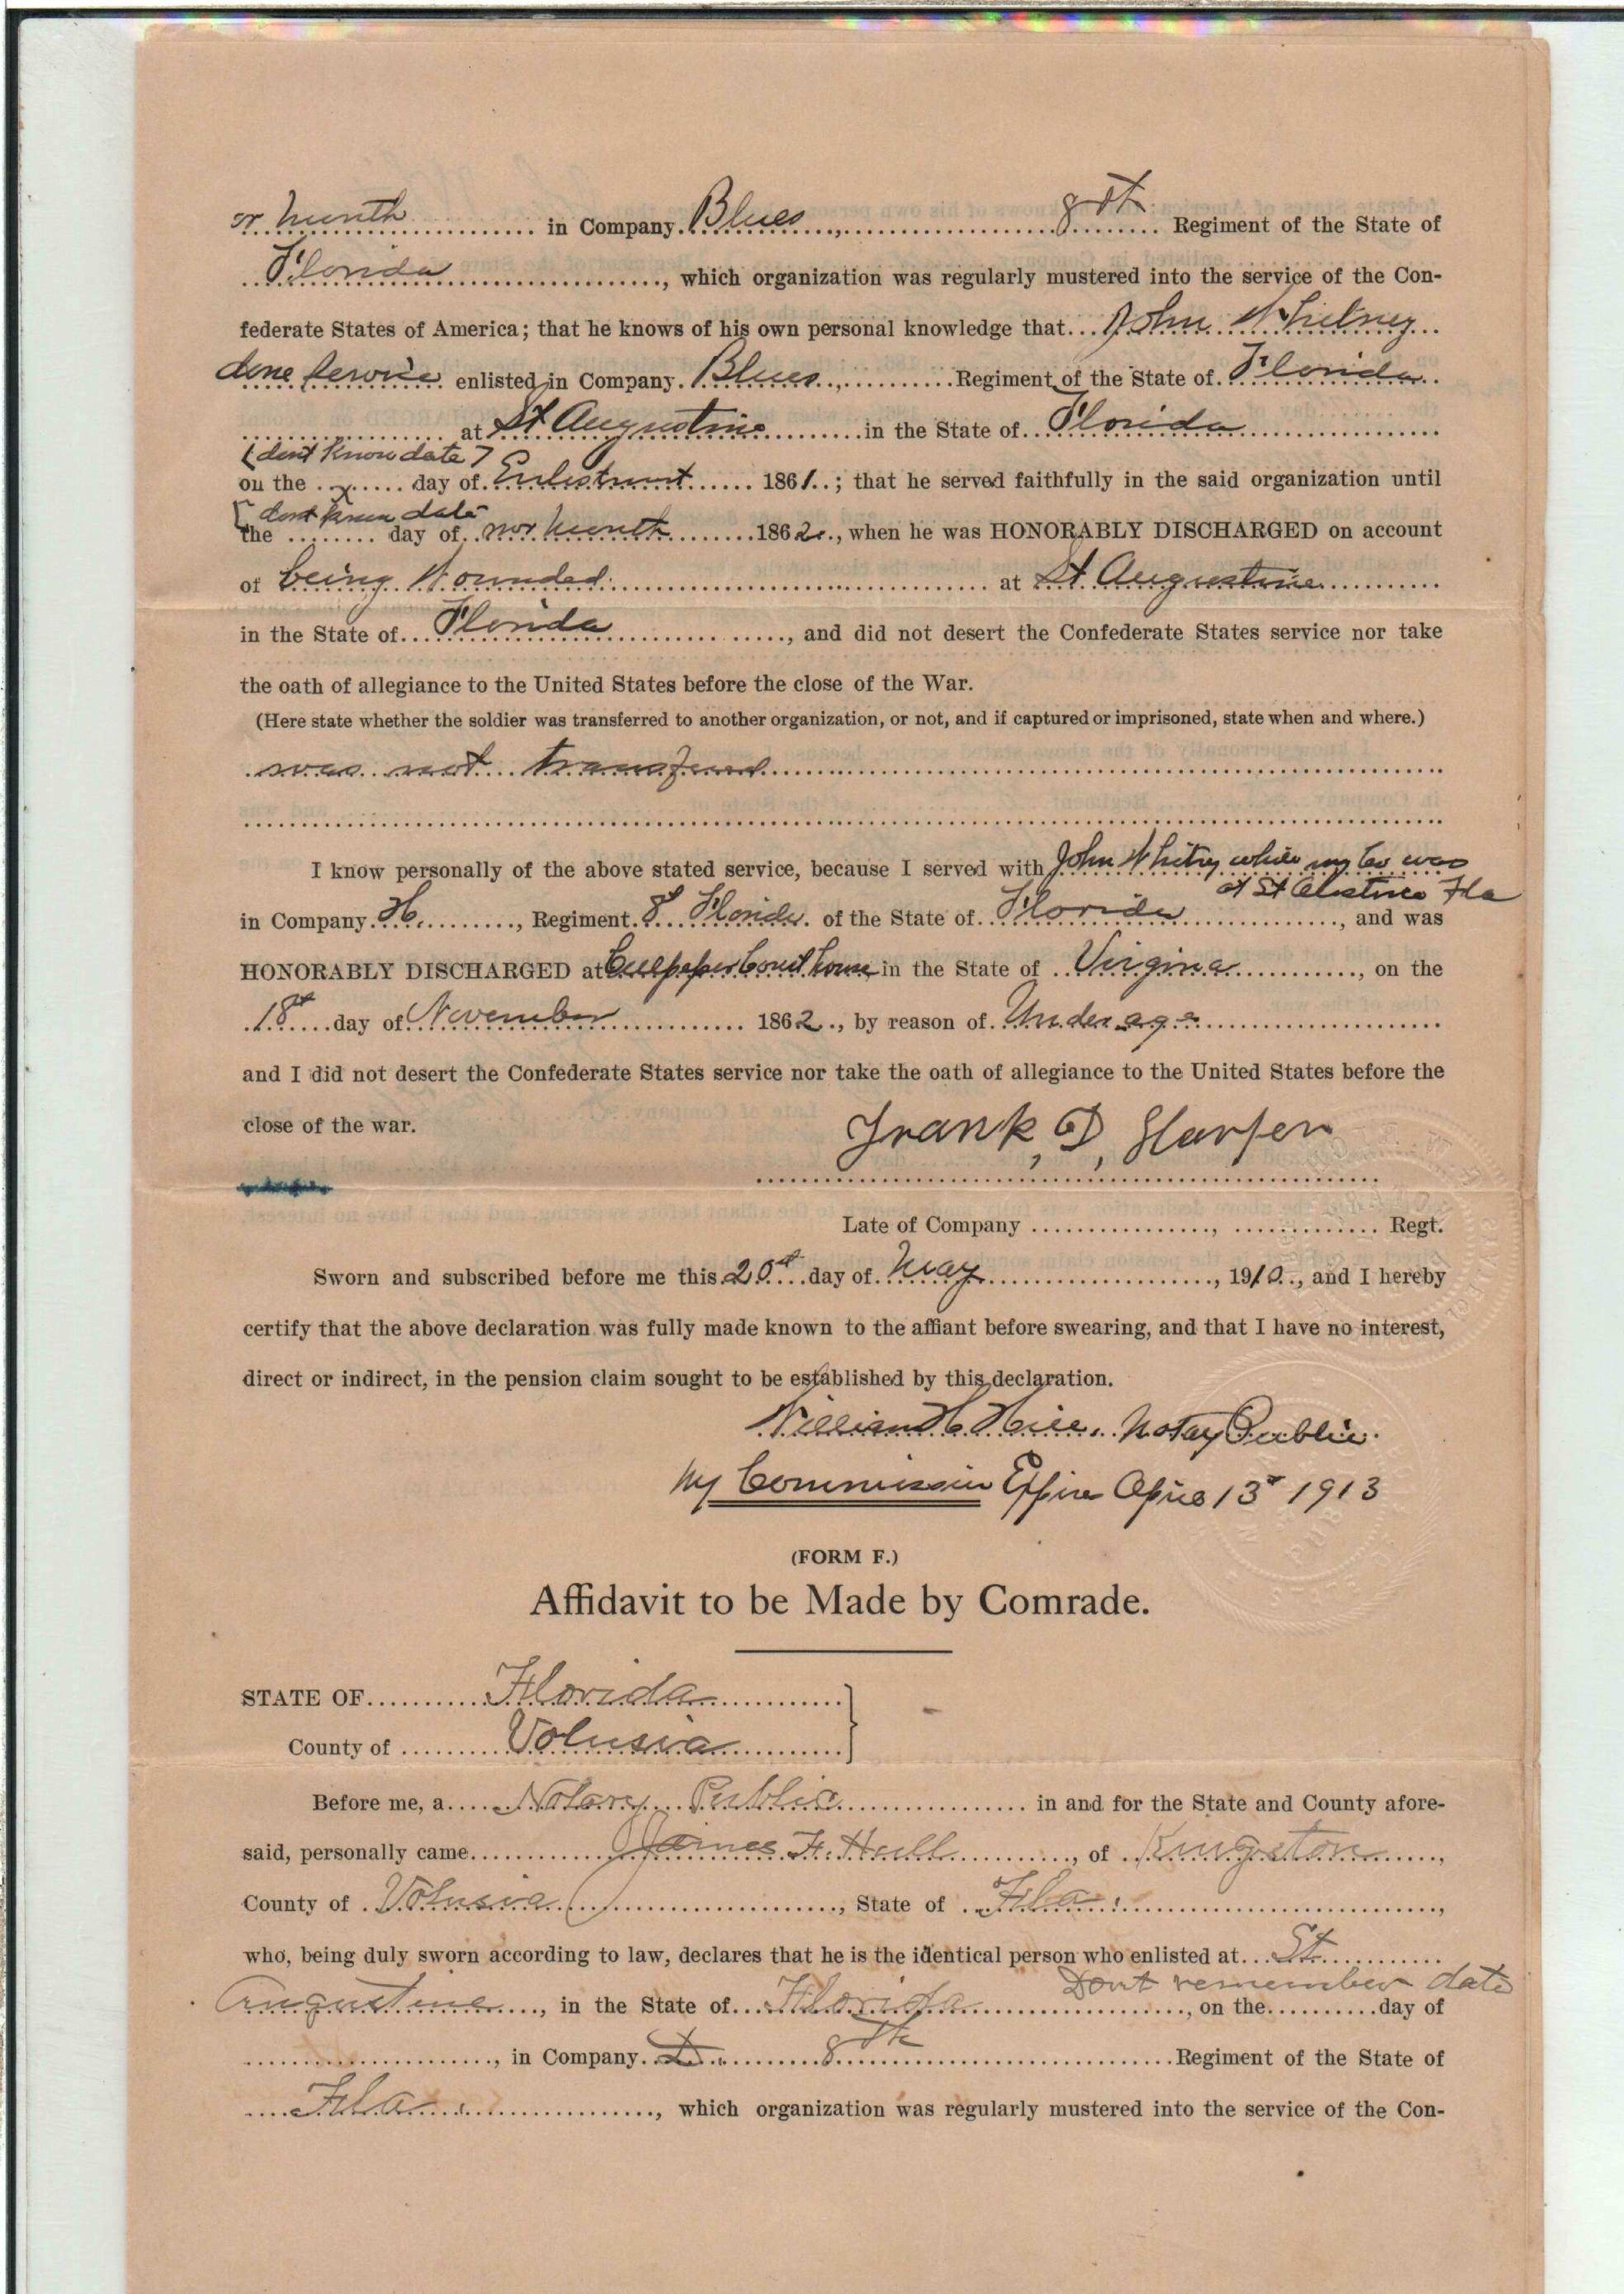 or month in Company Blues, 8th Regiment of the State of
Florida, which organization was regularly mustered into the service of the Con-
federate States of America; that he knows of his own personal knowledge that John Whitney
done service enlisted in Company Blues, Regiment of the State of Florida
at St Augustine in the State of Florida
(dont know date)
on the x day of Enlistment 1861; that he served faithfully in the said organization until
dont know date
the day of nor month 1862, when he was HONORABLY DISCHARGED on account
of being Wounded at St. Augustine
in the State of Florida, and did not desert the Confederate States service nor take
the oath of allegiance to the United States before the close of the War.
(Here state whether the soldier was transferred to another organization, or not, and if captured or imprisoned, state when and where.)
was not transfered
I know personally of the above stated service, because I served with John Whitney while my Co was
at St Fla
in Company H, Regiment 8 Florida of the State of Florida, and was
HONORABLY DISCHARGED at Culpeper Court house in the State of Virgina, on the
18th day of November 1862, by reason of Under age
and I did not desert the Confederate States service nor take the oath of allegiance to the United States before the
close of the war.
Frank, D,
Late of Company , Regt.
Sworn and subscribed before me this 20th day of May, 1910, and I hereby
certify that the above declaration was fully made known to the affiant before swearing, and that I have no interest,
direct or indirect, in the pension claim sought to be established by this declaration.
William Notay Public.
My Commission Expire April 13th 1913
(FORM F.)
Affidavit to be Made by Comrade.
STATE OF Florida
County of Volusia
Before me, a Notary Public in and for the State and County afore-
said, personally came James F. Hull, of Kingston,
County of Volusia, State of Fla.,
who, being duly sworn according to law, declares that he is the identical person who enlisted at St.
Dont remember date
Augustine, in the State of Florida, on the day of
, in Company D. 8th Regiment of the State of
Fla., which organization was regularly mustered into the service of the Con-